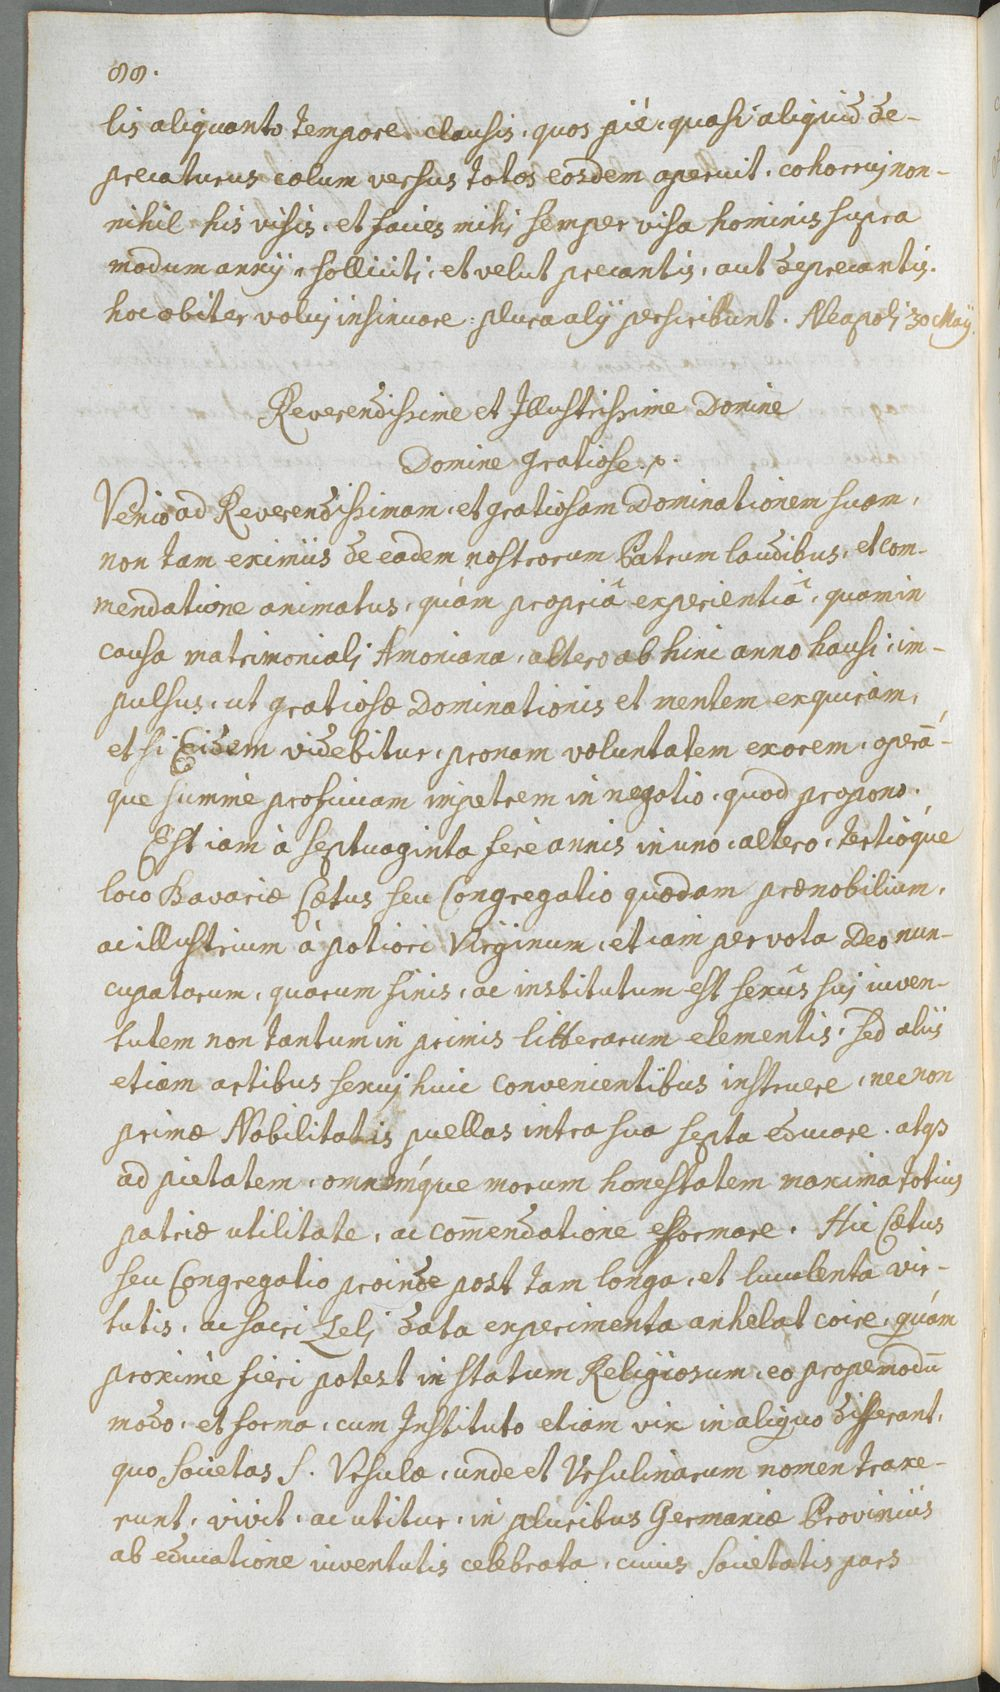 88.
lis aliquanto tempore clausis, quos piè, quasi aliquid de-
precaturus coelum versus totos eosdem aperuit, cohorruj non-
nihil his visis, et facies mihj semper visa hominis supra
modum anxij, sollicitj, et velut precantis, aut deprecantis.
hoc obiter voluj insinuare: plura alij perscribunt. Neapolj 30 Maij.
Reverendissime et Illustrissime Domine
Domine gratiose. p.
Venio ad Reverendissimam, et gratiosam Dominationem suam,
non tam eximiis de eadem nostrorum Patrum laudibus, et com-
mendatione animatus, quám propriâ experientiâ, quam in
causa matrimonialj Amoniana, altero ab hinc anno hausi, im-
pulsus, ut gratiosæ Dominationis et mentem exquiram,
et si Eidem videbitur, pronam voluntatem exorem, operā-
que summe proficuam impetrem in negotio, quod propono.
Est iam à septuaginta ferè annis in uno, altero, tertióque
loco Bavariæ Cœtus seu Congregatio quædam prænobilium,
ac illustrium à potiori Virginum, etiam per vota Deo nun-
cupatarum, quarum finis, ac institutum est sexûs suj iuven-
tutem non tantum in primis litterarum elementis, sed aliis
etiam artibus sexuj huic convenientibus instruere, nec non
primæ Nobilitatis puellas intra sua septa educare, atq3
ad pietatem, omnémque morum honestatem maxima totius
patriæ utilitate, ac com̄endatione efformare. Hic Cœtus
seu Congregatio proinde post tam longa, et luculenta vir-
tutis, ac sacri Zelj data experimenta anhelat coire, quám
proximè fieri potest in statum Religiosum, eo propemodū
modo, et forma, cum Instituto etiam vix in aliquo differant,
quo Societas S. Ursulæ, unde et Ursulinarum nomen traxe-
runt, vivit, ac utitur, in pluribus Germaniæ Provinciis
ab educatione iuventutis celebrata, cuius Societatis pars